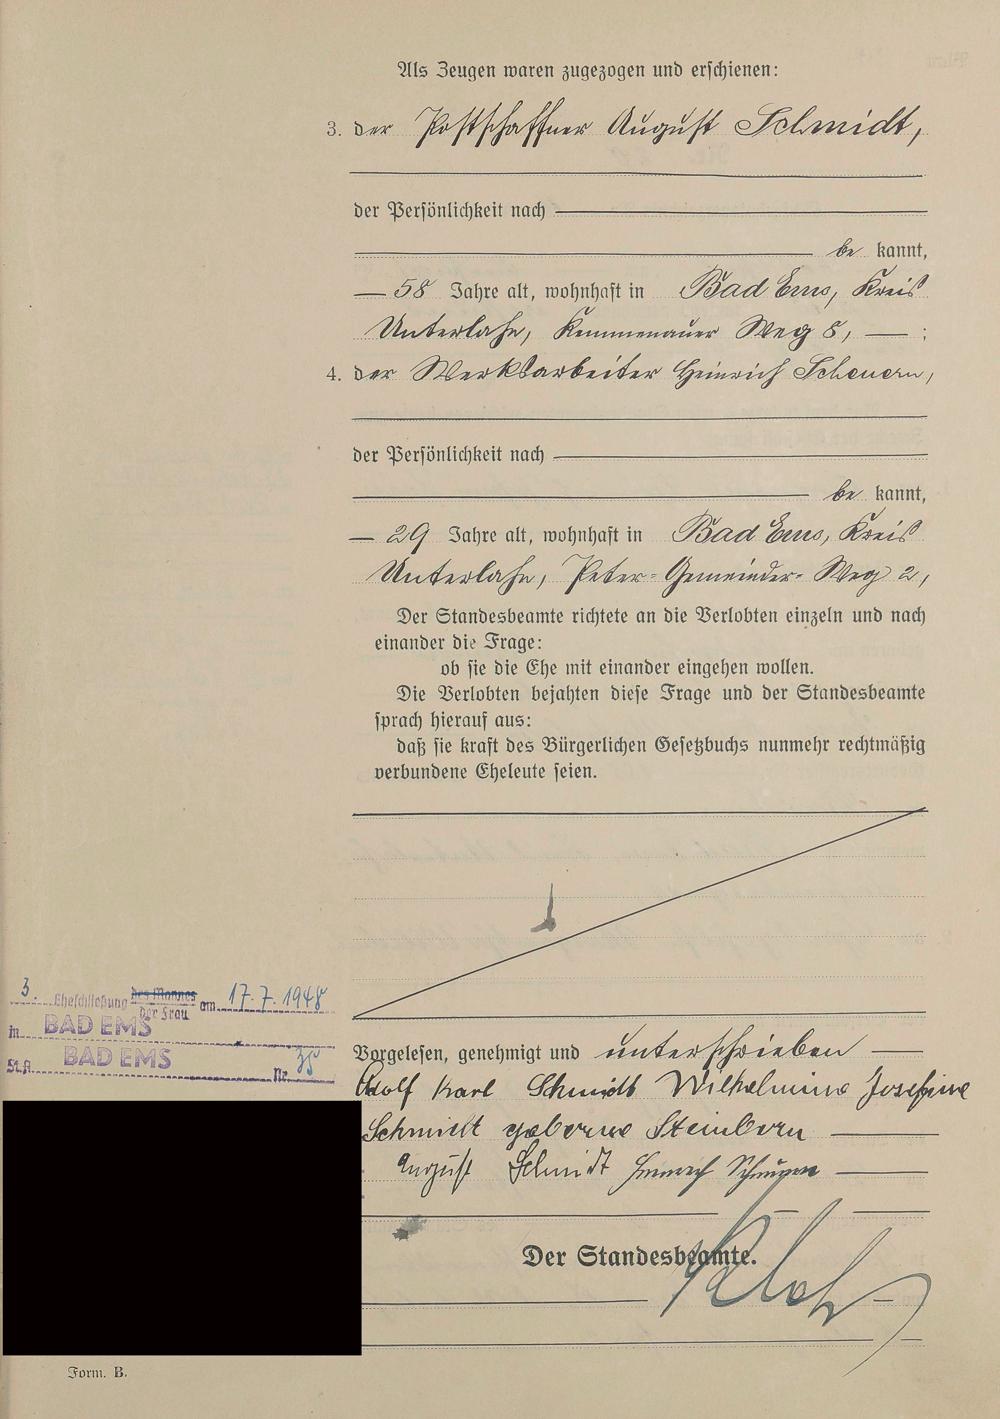 Als Zeugen waren zugezogen und erschienen:
3. der Postschaffner August Schmidt,
der Persönlichkeit nach
be kannt,
58 Jahre alt, wohnhaft in Bad Ems, Kreis
Unterlahn, Kemmenauer Weg 8, ;
4. der Werksarbeiter Heinrich Scheuern,
der Persönlichkeit nach
be kannt,
29 Jahre alt, wohnhaft in Bad Ems, Kreis
Unterlahn, Peter-Gemeinder-Weg 2,
Der Standesbeamte richtete an die Verlobten einzeln und nach
einander die Frage:
ob sie die Ehe mit einander eingehen wollen.
Die Verlobten bejahten diese Frage und der Standesbeamte
sprach hierauf aus:
daß sie kraft des Bürgerlichen Gesetzbuchs nunmehr rechtmäßig
verbundene Eheleute seien.
Vorgelesen, genehmigt und unterschrieben
Adolf Karl Schmidt Wilhelmine Josefine
Schmidt geborene Steinborn
August Schmidt Heinrich Scheuern
Der Standesbeamte.
3. Eheschließung des Mannes der Frau am 17.7.1948
in BAD EMS
St.A. BAD EMS Nr. 35
Form. B.